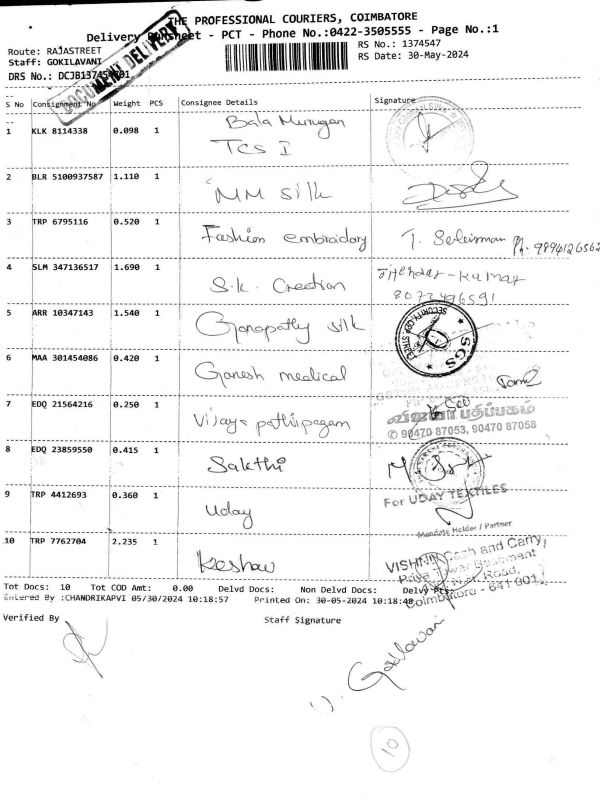 THE PROFESSIONAL COURIERS, COIMBATORE
Delivery Runsheet - PCT - Phone No.:0422-3505555 - Page No.:1
DOCUMENT DELIVERY
Route: RAJASTREET
RS No.: 1374547
Staff: GOKILAVANI
RS Date: 30-May-2024
DRS No.:
S No Consignment No Weight PCS Consignee Details Signature
1 KLK 8114338 0.098 1 Bala Murugan
TCS I
2 BLR 5100937587 1.110 1 MM Silk
3 TRP 6795116 0.520 1 Fashion embroidary T. Seleisman Ph. 9894126562
4 SLM 347136517 1.690 1 S.K. Creation Jitendar - Kumar
8073496591
5 ARR 10347143 1.540 1 Ganapathy silk
SECURITY OPP. STREET SGS
6 MAA 301454086 0.420 1 Ganesh medical
7 EDQ 21564216 0.250 1 Vijaya pathipagam
விஜயா பதிப்பகம்
✆ 90470 87053, 90470 87058
8 EDQ 23859550 0.415 1 Sakthi
For UDAY TEXTILES
9 TRP 4412693 0.360 1 Uday
Mandate Holder / Partner
10 TRP 7762704 2.235 1 Keshav
Cash and Carry,
Basement
Road,
Coimbatore - 641 001
Tot Docs: 10 Tot COD Amt: 0.00 Delvd Docs: Non Delvd Docs: Delvd Pcs:
Entered By :CHANDRIKAPVI 05/30/2024 10:18:57 Printed On: 30-05-2024 10:18:48
Verified By Staff Signature
10